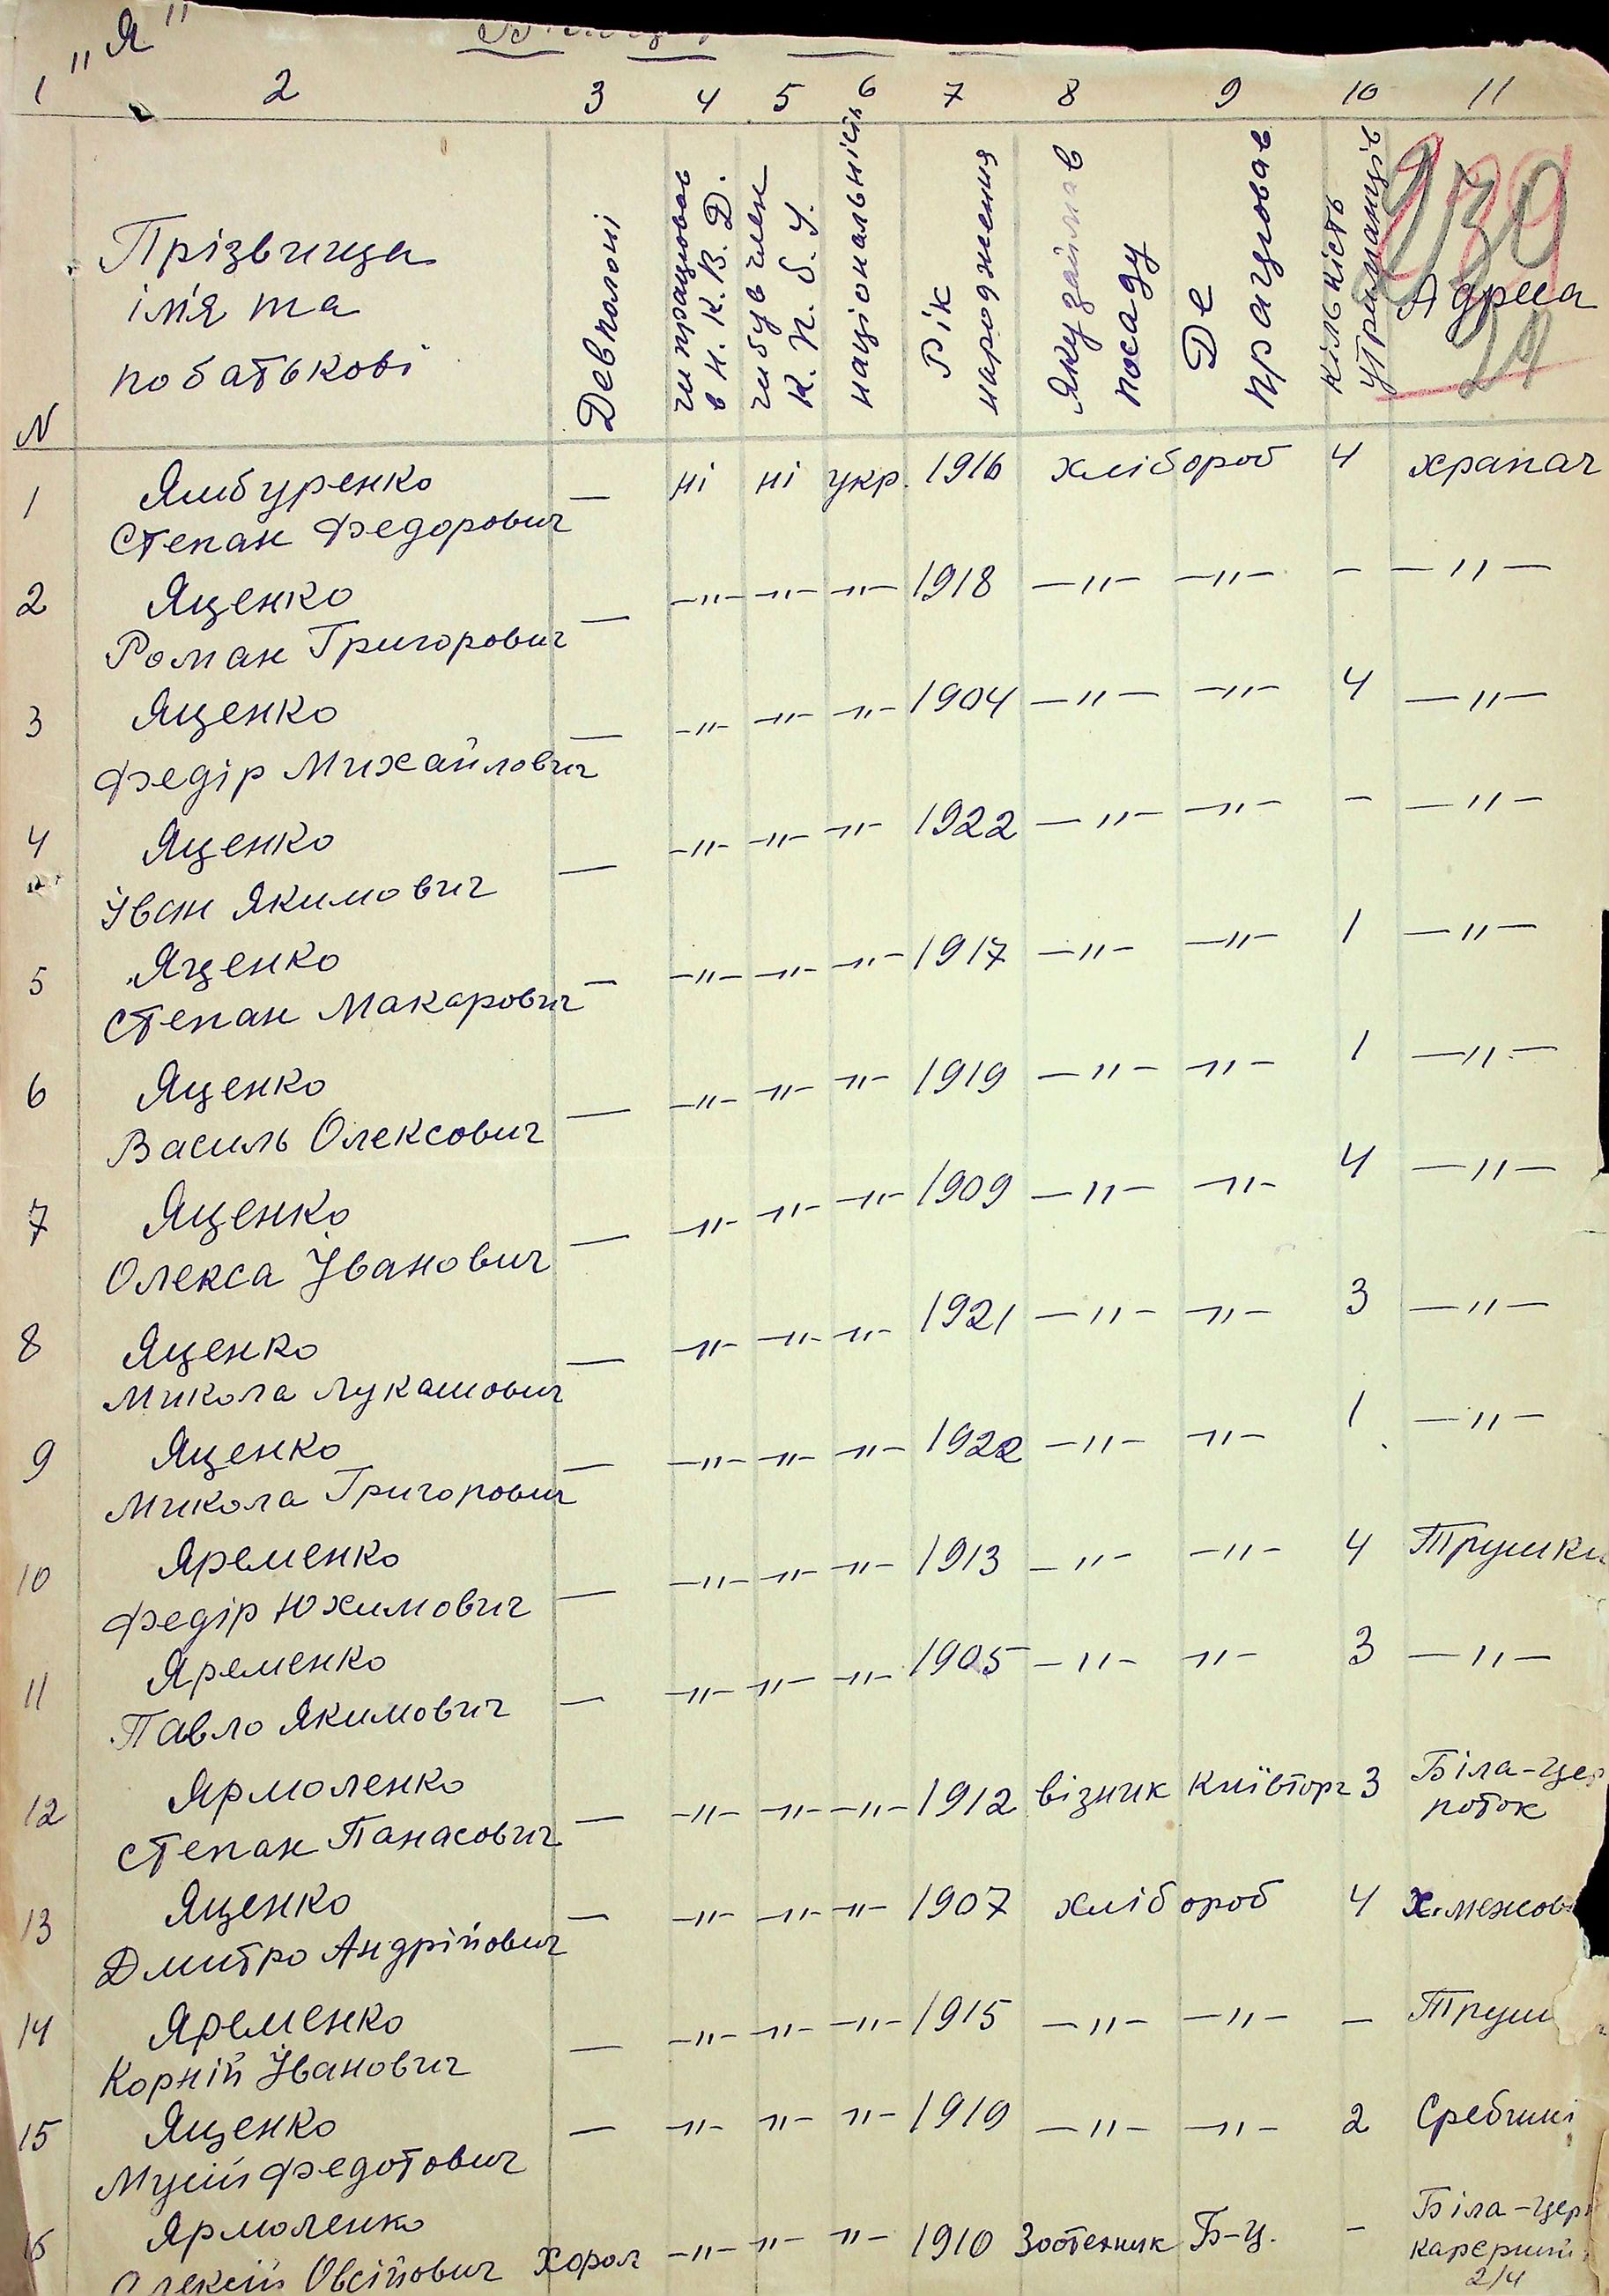 „Я"
1 2 3 4 5 6 7 8 9 10 11
N Прізвища ім'я та по батькові Де в полоні чи працював в Н.К.В.Д. чи був член К.П.б.У. національність Рік народження Яку займав посаду Де працював кількість утриманців Адреса
239
21
1 Ямбуренко — ні ні укр. 1916 хлібороб 4 храпач
Степан Федорович
2 Яценко — —"— —"— —"— 1918 —"— —"— — —"—
Роман Григорович
3 Яценко — —"— —"— —"— 1904 —"— —"— 4 —"—
Федір Михайлович
4 Яценко — —"— —"— —"— 1922 —"— —"— — —"—
Іван Якимович
5 Яценко — —"— —"— —"— 1917 —"— —"— 1 —"—
Степан Макарович
6 Яценко — —"— —"— —"— 1919 —"— —"— 1 —"—
Василь Олексович
7 Яценко — —"— —"— —"— 1909 —"— —"— 4 —"—
Олекса Іванович
8 Яценко — —"— —"— —"— 1921 —"— —"— 3 —"—
Микола Лукашович
9 Яценко — —"— —"— —"— 1922 —"— —"— 1 —"—
Микола Григорович
10 Яременко — —"— —"— —"— 1913 —"— —"— 4 Трушки
Федір Юхимович
11 Яременко — —"— —"— —"— 1905 —"— —"— 3 —"—
Павло Якимович
12 Ярмоленко — —"— —"— —"— 1912 візник Київторг 3 Біла-цер
Степан Панасович поток
13 Яценко — —"— —"— —"— 1907 хлібороб 4 х.межов
Дмитро Андрійович
14 Яременко — —"— —"— —"— 1915 —"— —"— — Труш
Корній Іванович
15 Яценко — —"— —"— —"— 1919 —"— —"— 2
Мусій Федотович
16 Ярмоленко Хорол —"— —"— —"— 1910 Зоотехник Б-ц. — Біла-цер
Олексій Овсійович 2/4